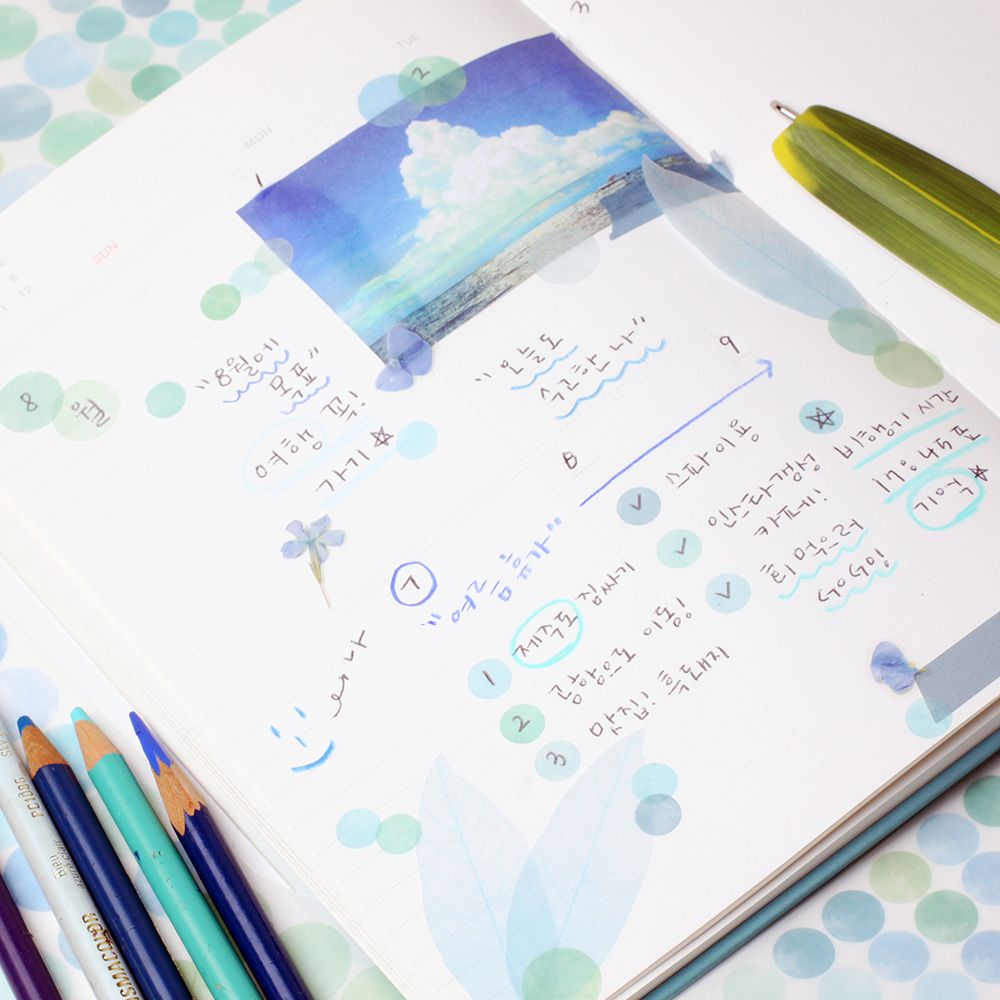 3
TUE
2
MON
1
SUN
8월
"8월에
목표"
여행 꼭!
가기☆
"오늘도
수고한 나"
9
8
7
"여름 휴가"
✓ 스파이용
✓ 인스타갬성
카페!
✓ 회 먹으러
GoGo!
☆ 비행기 시간
17:45 표
1 제주도 짐싸기
2 공항으로 이동!
3 맛집! 흑돼지
신나
PC1086
Bleu
azure clair